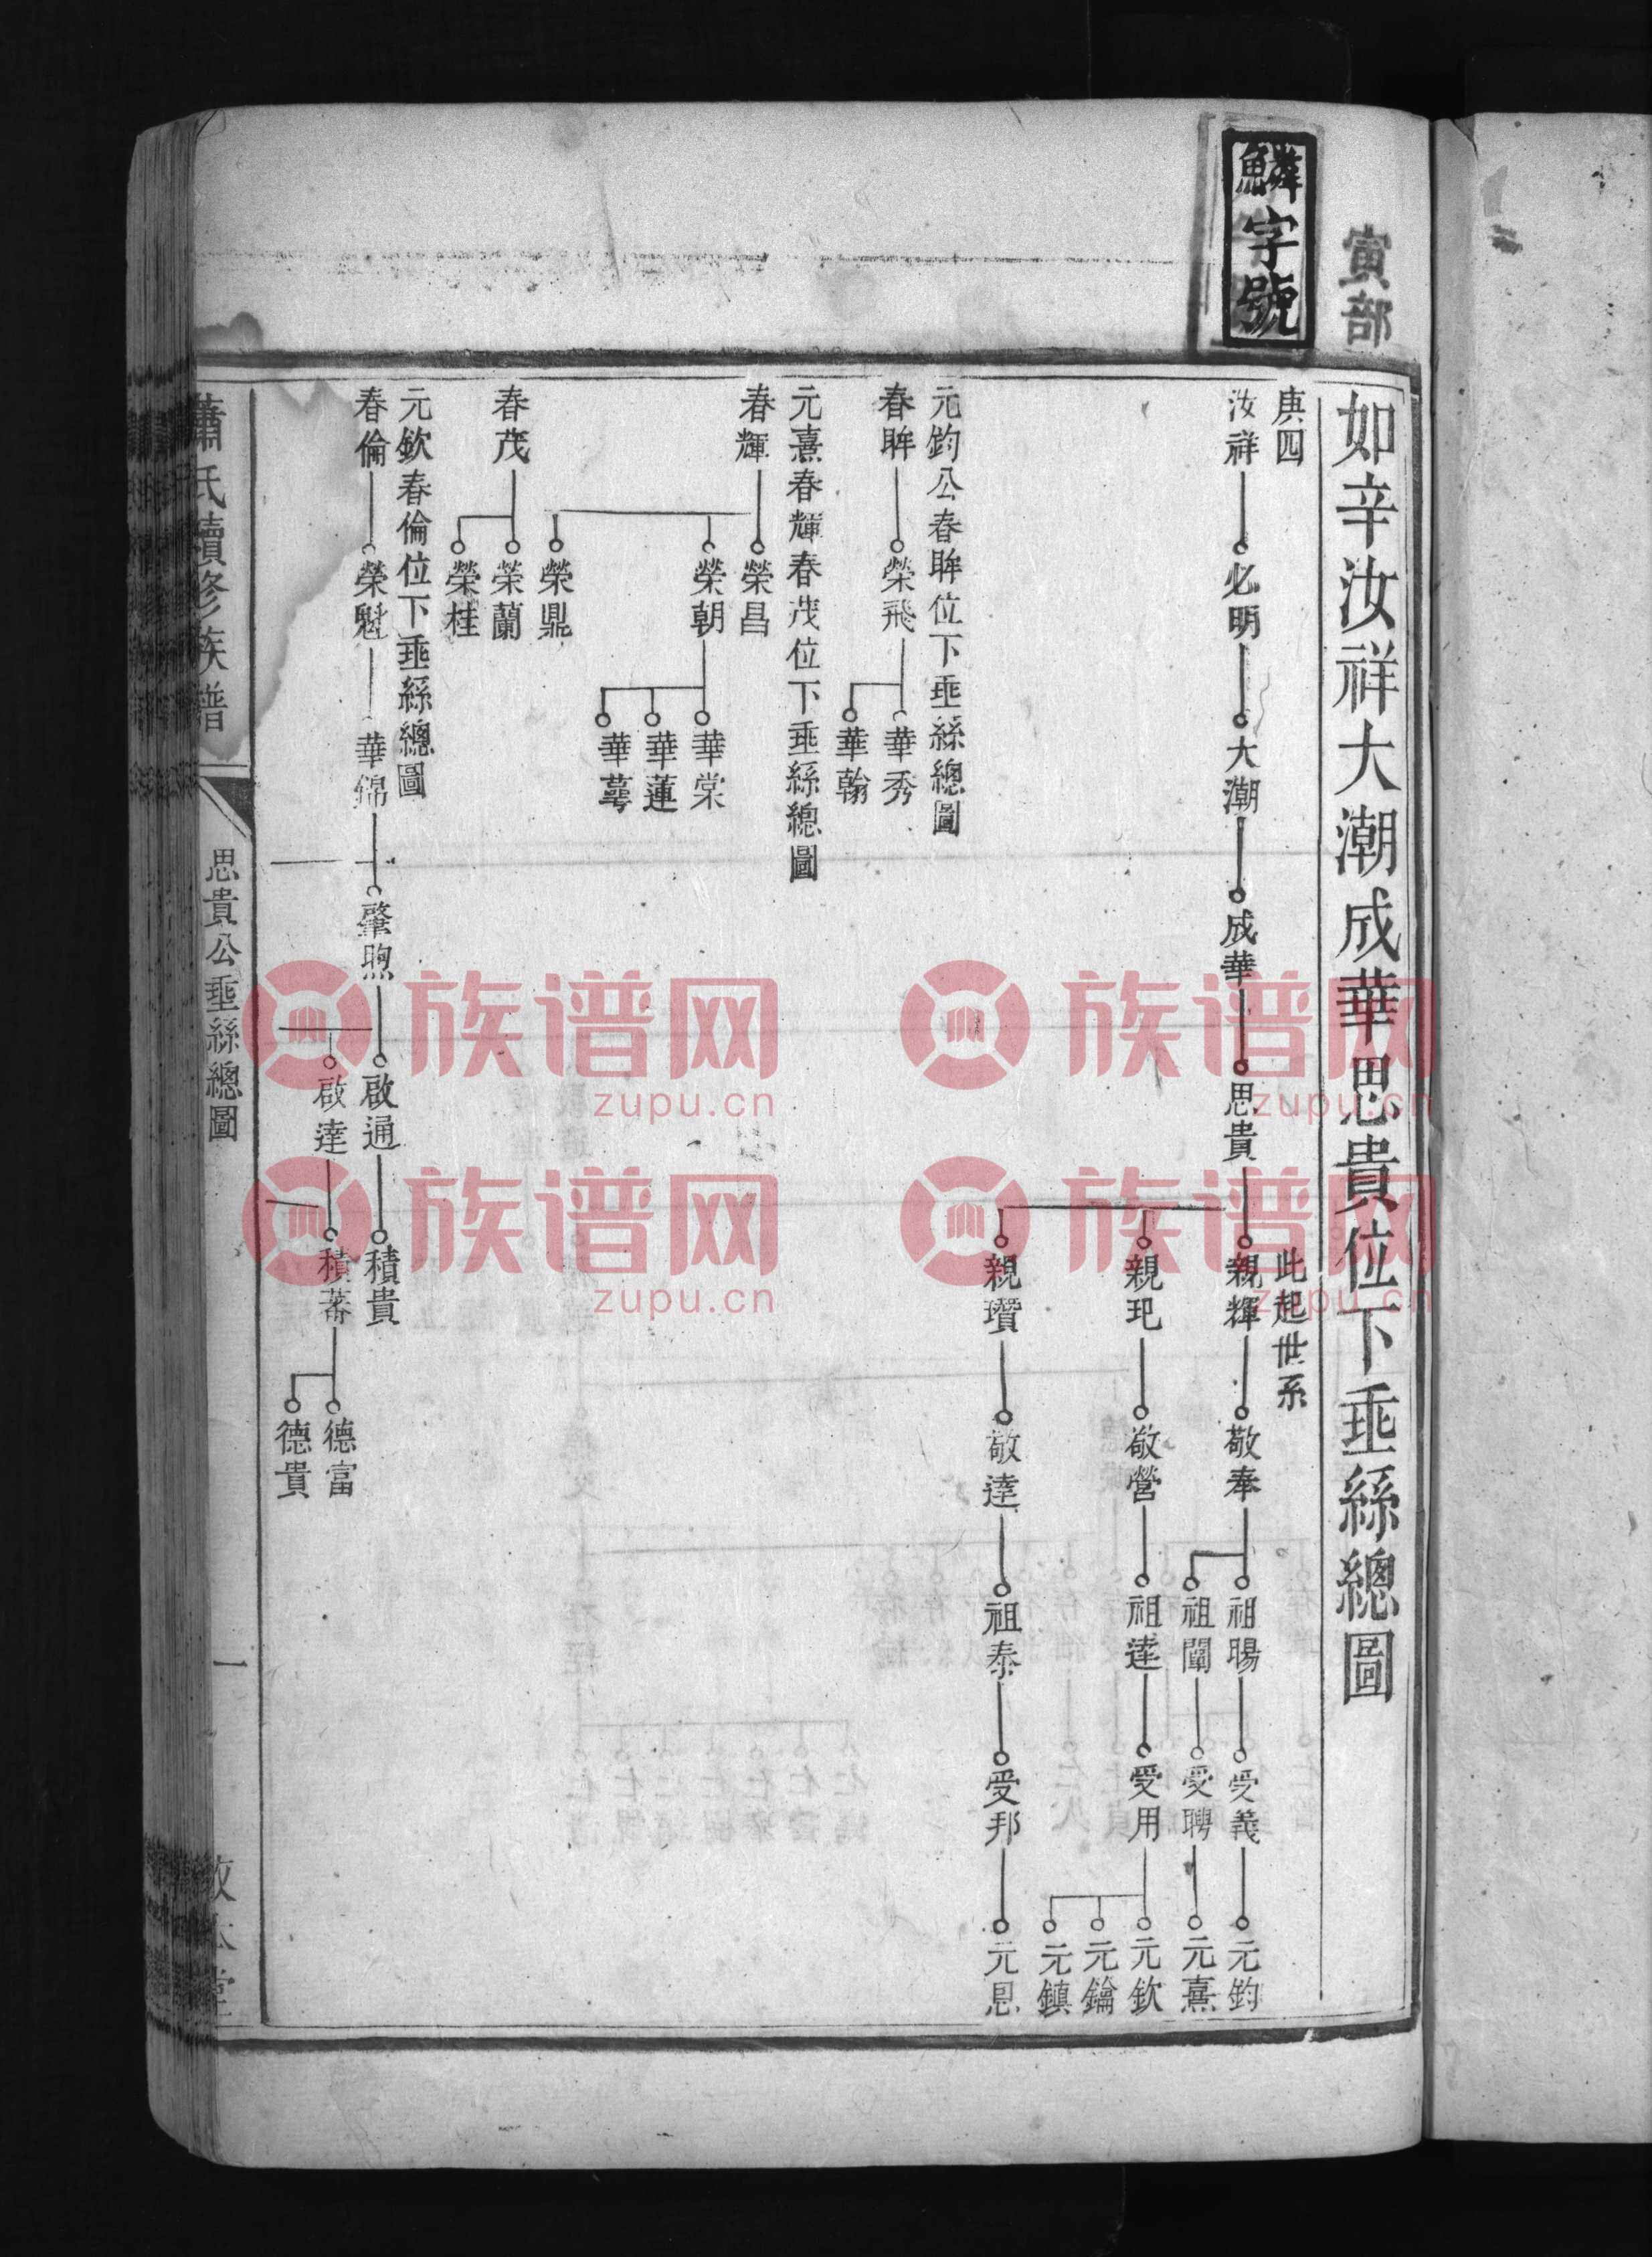 寅部
鱗字號
如辛汝祥大潮成華思貴位下垂絲總圖
庚四
此起世系
汝祥
必明
大潮
成華
思貴
親輝
敬奉
祖暘
受義
元鈞
祖闡
受聘
元熹
親玘
敬營
祖達
受用
元欽
元鑰
元鎮
親瓚
敬達
祖泰
受邦
元恩
元鈞公春眸位下垂絲總圖
春眸
榮飛
華秀
華翰
元熹春輝春茂位下垂絲總圖
春輝
榮昌
榮朝
華棠
華蓮
華萼
榮鼎
春茂
榮蘭
榮桂
元欽春倫位下垂絲總圖
春倫
榮魁
華錦
肇煦
啟通
積貴
啟達
積蕃
德富
德貴
蕭氏續修族譜
思貴公垂絲總圖
一
族谱网
zupu.cn
族谱网
zupu.cn
族谱网
zupu.cn
族谱网
zupu.cn